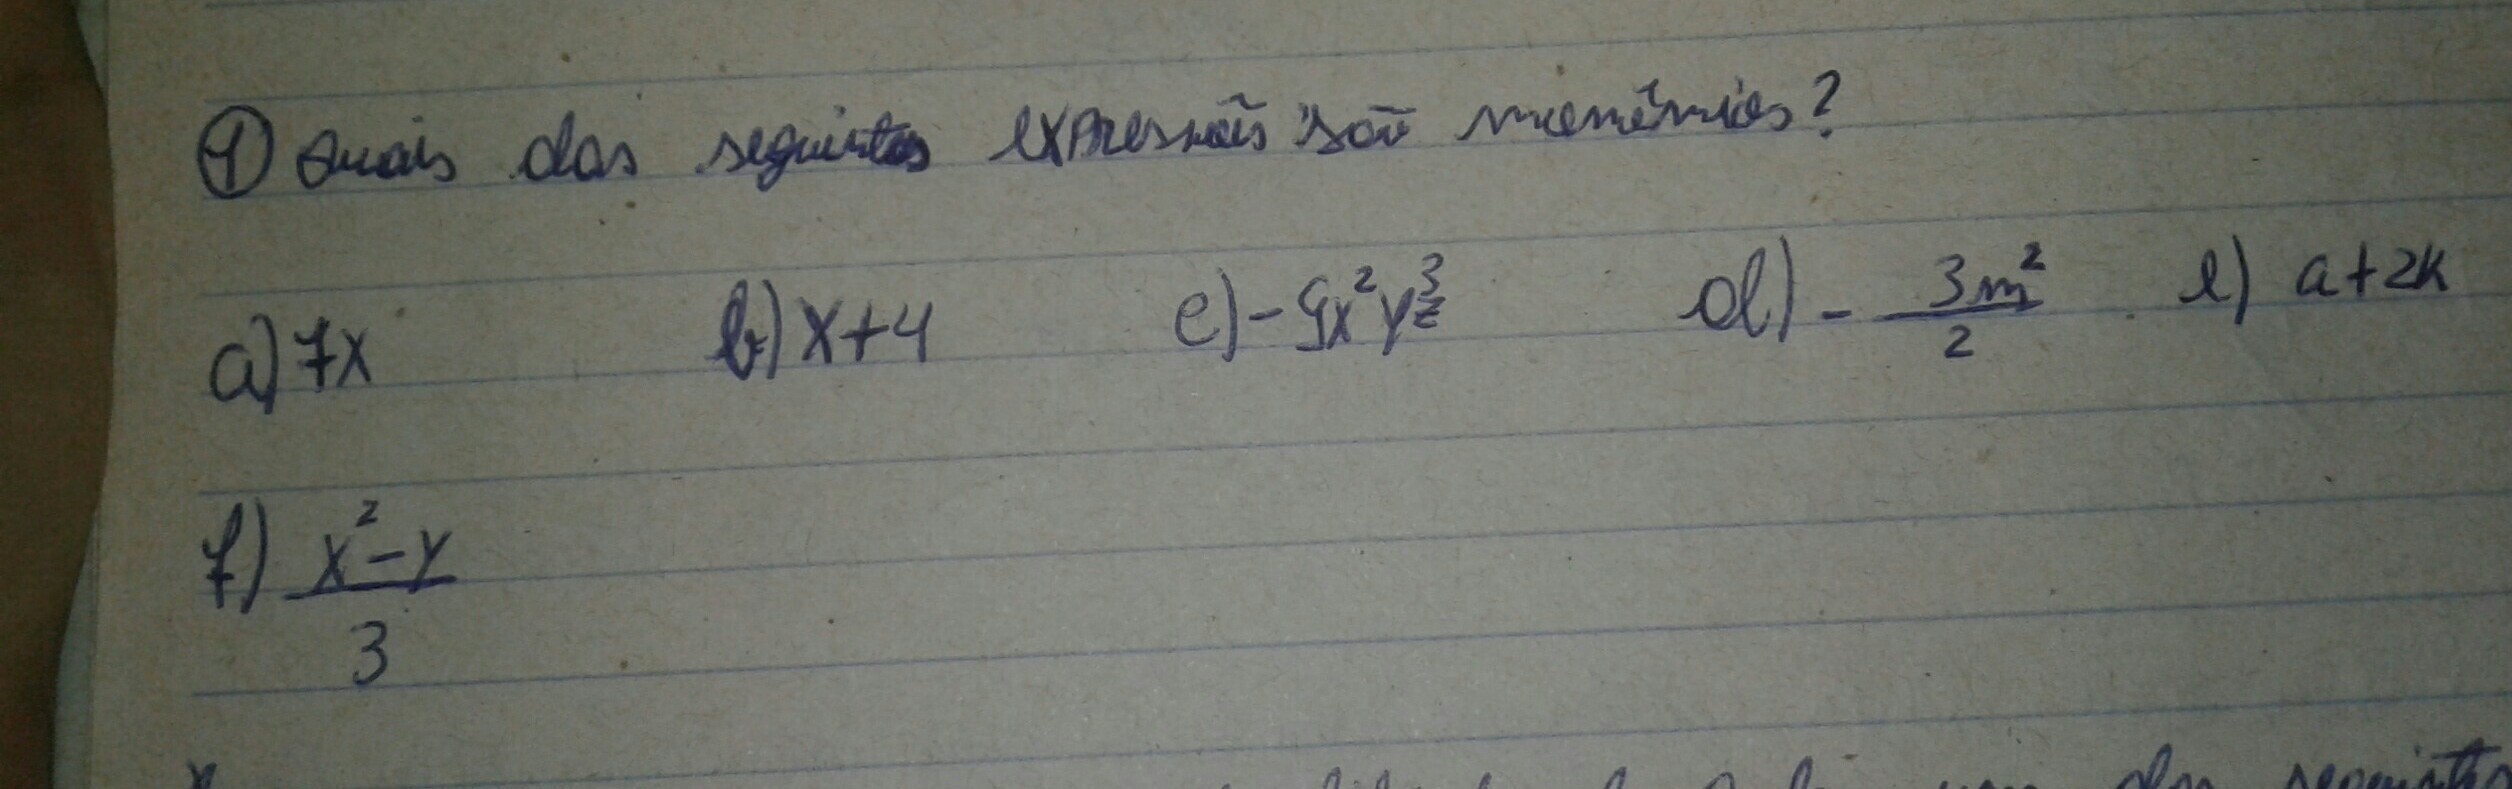 ① Quais das seguintes expressões são monômios?
a) 7x b) x+4 c) -9x²y³z d) - 3m²/2 e) a+2k
f) x²-y/3
das seguintes